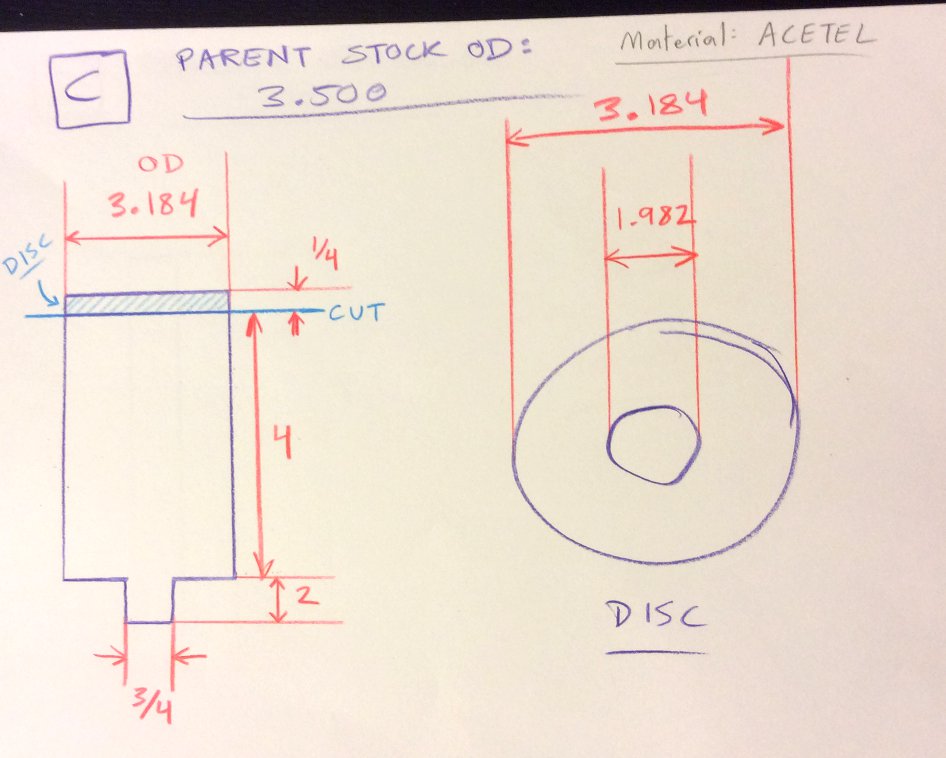 C
PARENT STOCK OD:
3.500
Material: ACETEL
OD
3.184
DISC
1/4
CUT
4
2
3/4
3.184
1.982
DISC